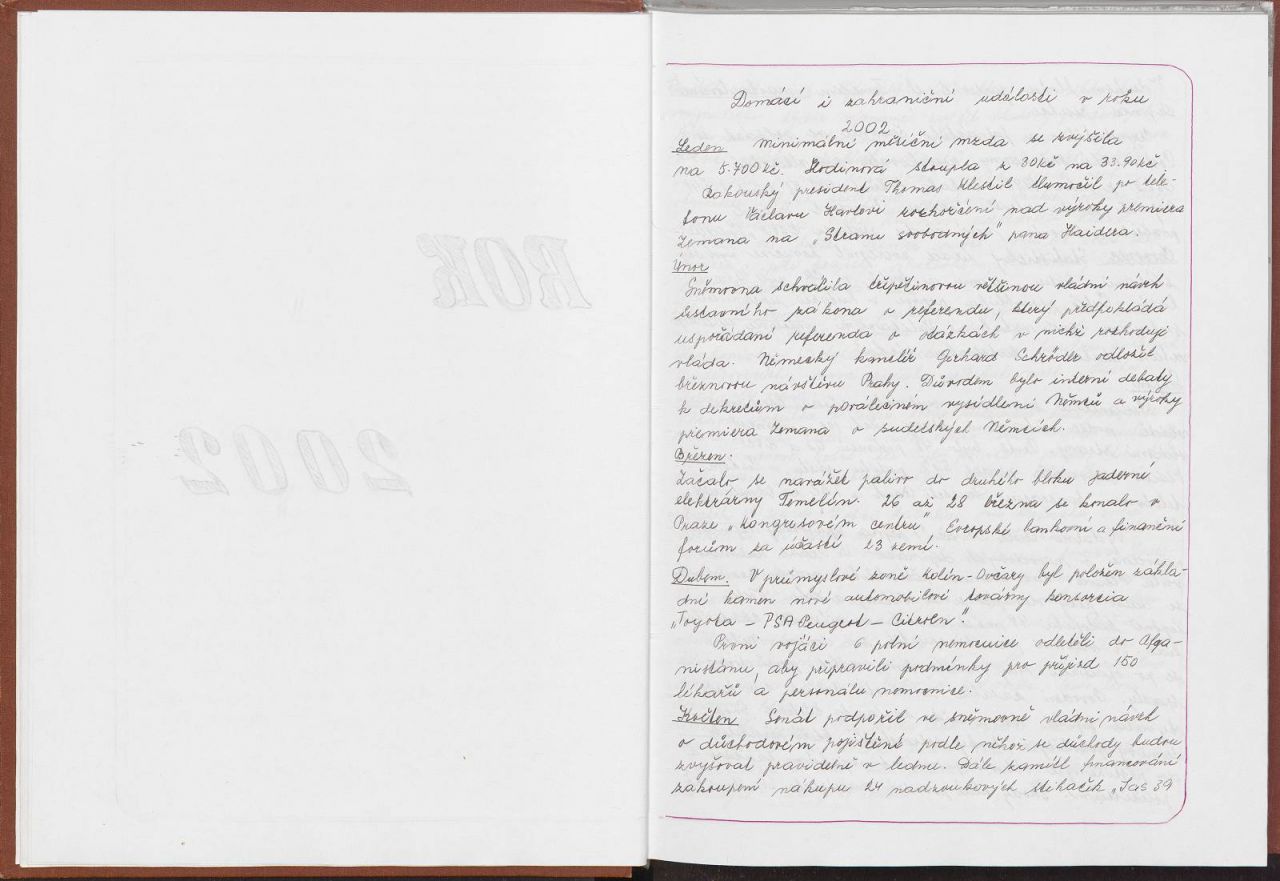 ROK
2002
Domácí i zahraniční události v roku
2002
Leden minimální měsíční mzda se zvýšila
na 5.700 kč. Hodinová stoupla z 30kč na 33.90kč.
Rakouský president Thomas Klestil tlumočil po tele-
fonu Václavu Havlovi rozhořčení nad výroky premiera
Zemana na „Straně svobodných" pana Haidera.
Únor
Sněmovna schválila třípětinovou většinou vládní návrh
ústavního zákona o referendu, který předpokládá
uspořádaní referenda o otázkách v nichž rozhoduje
vláda. Německý kancléř Gerhard Schröder odložil
březnovou návštěvu Prahy. Důvodem bylo interní debaty
k dekretům o poválečném vysídlení Němců a výroky
premiera Zemana o sudetských Němcích.
Březen.
Začalo se navážet palivo do druhého bloku jaderné
elektrárny Temelín. 26 až 28 března se konalo v
Praze „Kongresovém centru" Evropské bankovní a finanční
forům za účasti 23 zemí.
Duben. V průmyslové zoně Kolín-Ovčáry byl položen zákla-
dní kamen nové automobilové továrny konsorcia
„Toyota - PSA Peugeot - Citroën".
První vojáci 6 polní nemocnice odletěli do Afga-
nistánu, aby připravili podmínky pro příjezd 150
lékařů a personálu nemocnice.
Květen Senát podpořil ve sněmovně vládní návrh
o důchodovém pojištění podle něhož se důchody budou
zvyšovat pravidelně v lednu. Dále zamítl financování
zakoupení nákupu 24 nadzvukových stíhaček „Jas 39